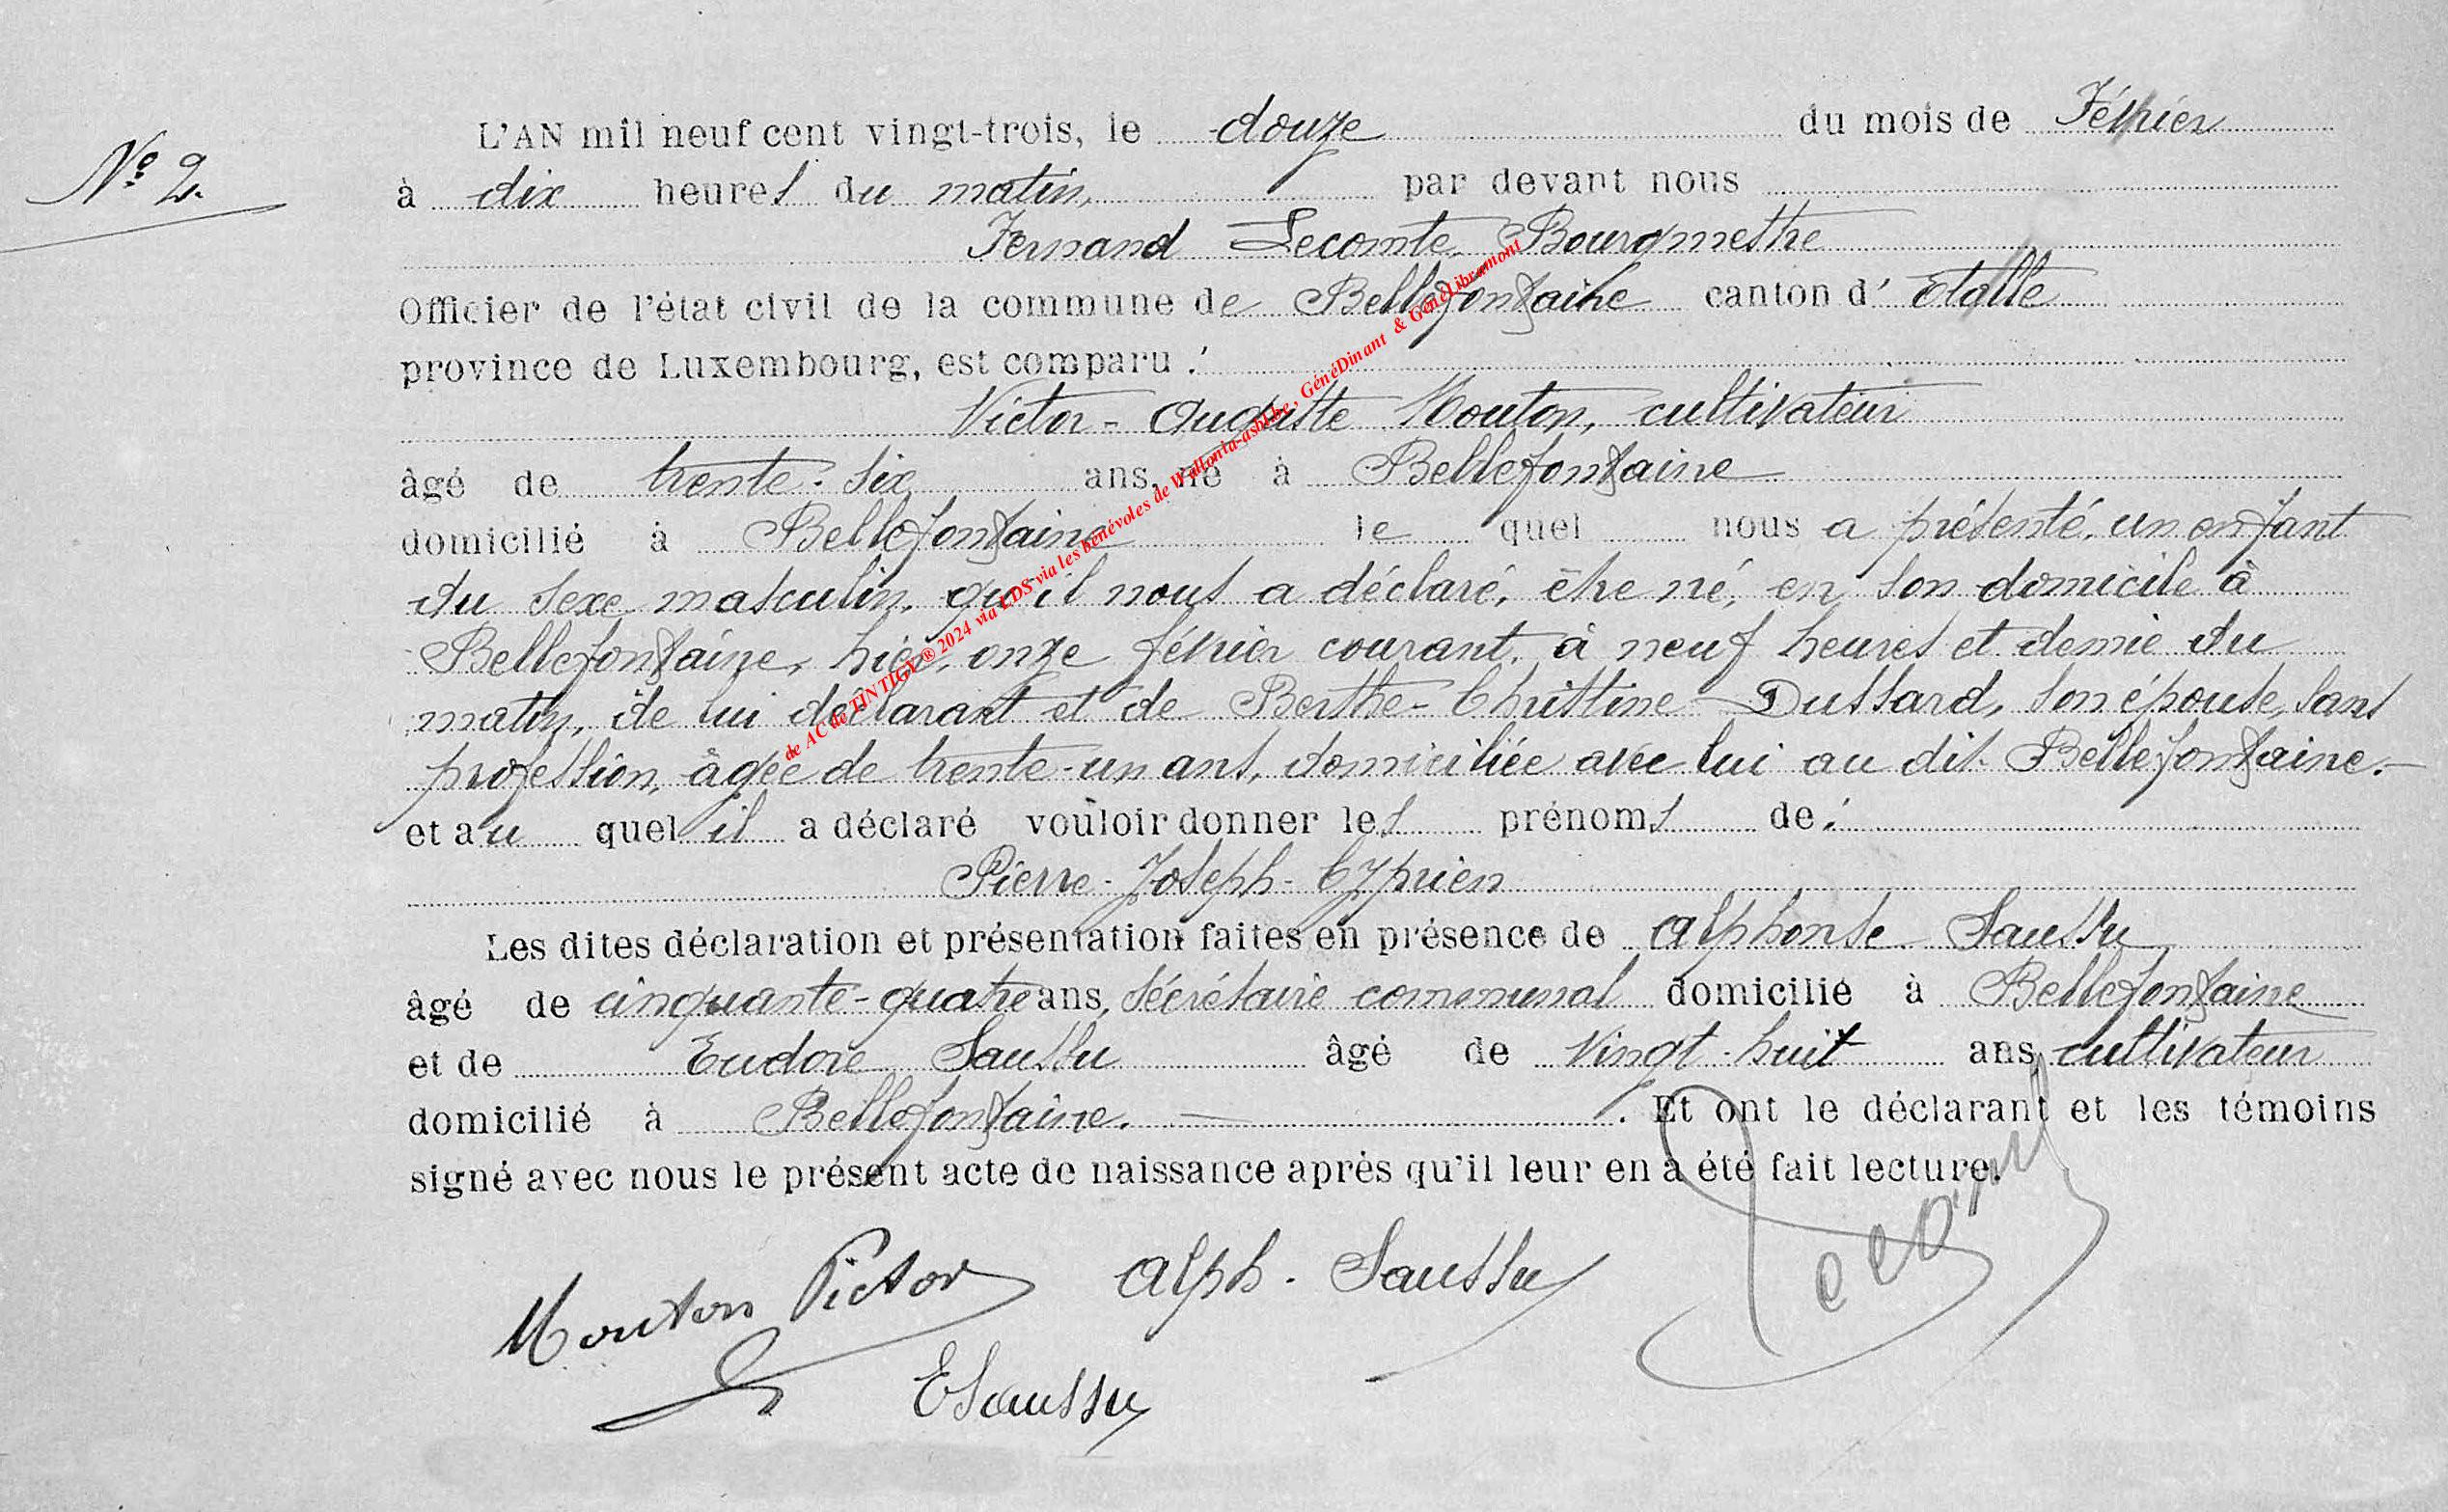 N° 2.
L'AN mil neuf cent vingt-trois, le douze du mois de Février
à dix heures du matin, par devant nous
Fernand Lecomte, Bourgmestre
Officier de l'état civil de la commune de Bellefontaine canton d' Etalle
province de Luxembourg, est comparu :
Victor-Auguste Mouton, cultivateur
âgé de trente-six ans, né à Bellefontaine
domicilié à Bellefontaine le quel nous a présenté, un enfant
du sexe masculin, qu'il nous a déclaré, être né, en son domicile à
Bellefontaine, hier, onze février courant, à neuf heures et demie du
matin, de lui déclarant et de Berthe-Christine Dussard, son épouse, sans
profession, âgée de trente-un ans, domiciliée avec lui au dit Bellefontaine.
et au quel il a déclaré vouloir donner les prénoms de :
Pierre-Joseph-Cyprien
Les dites déclaration et présentation faites en présence de Alphonse Saussu
âgé de cinquante-quatre ans, secrétaire communal domicilié à Bellefontaine
et de Eudore Saussu âgé de vingt-huit ans, cultivateur
domicilié à Bellefontaine. . Et ont le déclarant et les témoins
signé avec nous le présent acte de naissance après qu'il leur en a été fait lecture.
Mouton Victor Alph. Saussu
E Saussu
de AC de TINTIGY ® 2024 via LDS via les bénévoles de Wallonia-asbl.be, GénéDinant & GénéLibramont